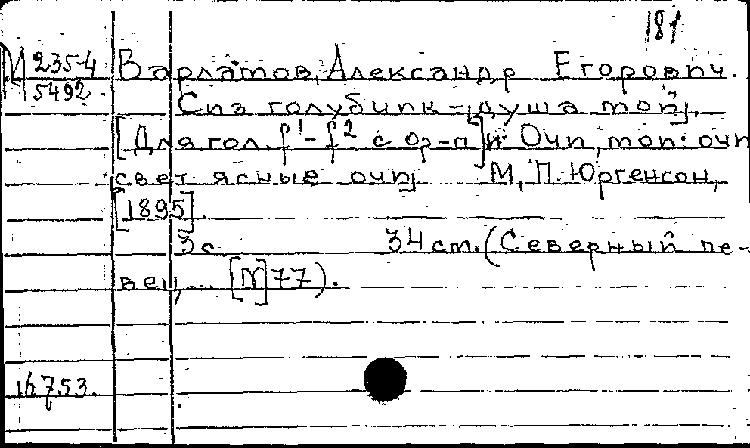 181
М 235-4 Варламов, Александр Егорович.
5492. Спи голубчик - душа мой,
[Для гол. f¹-f² с ф-п] н: Очи, мои: очи
свет ясные очи М, П. Юргенсон,
[1895].
3 с 34 см. (Северный пе-
вец, ... [N]77).
16753.